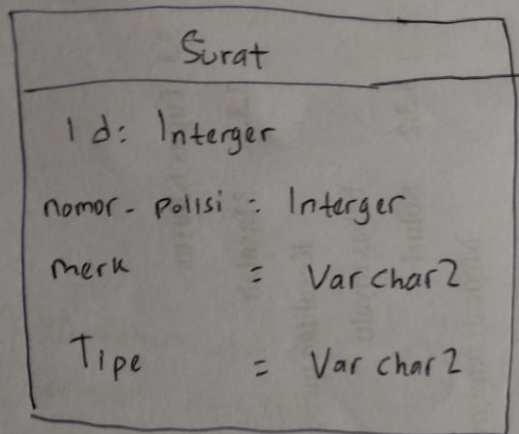 Surat
Id: Interger
nomor - polisi : Interger
merk = Varchar2
Tipe = Varchar2